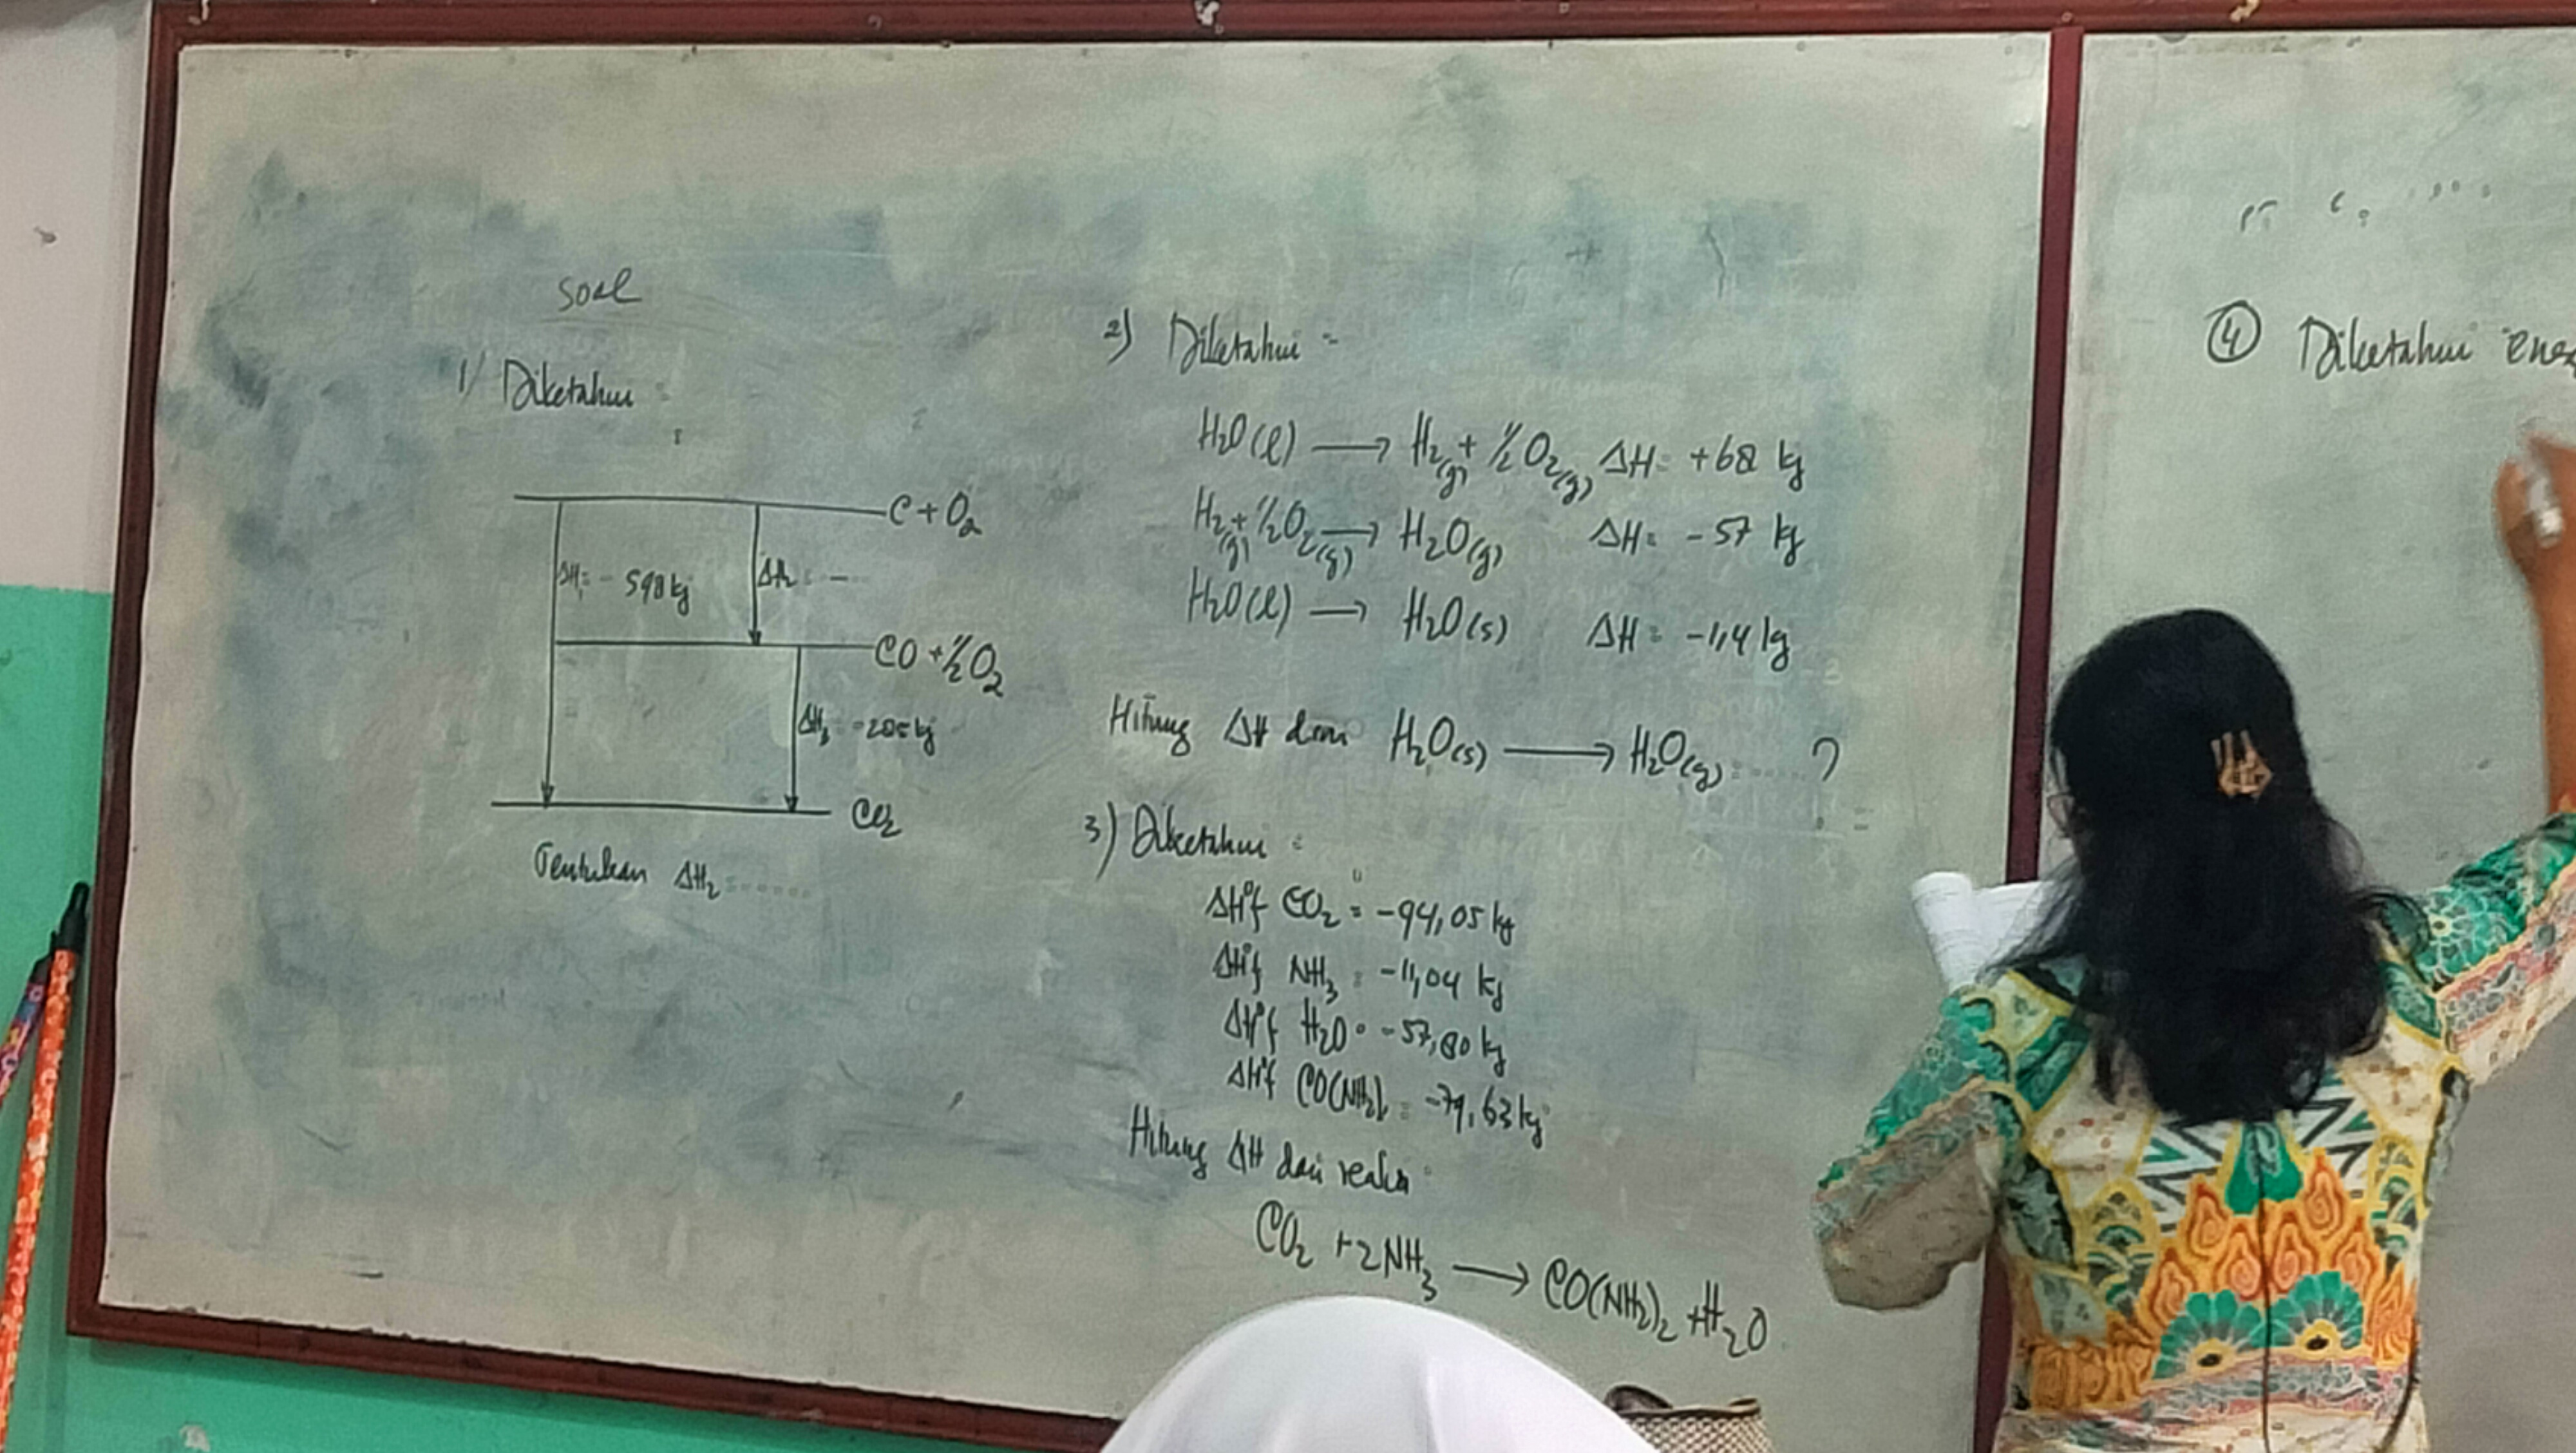 Soal
1) Diketahui :
C + O2
ΔH1 = - 598 kj
ΔH2 = - ...
CO + 1/2 O2
ΔH3 = -285 kj
CO2
Tentukan ΔH2 = ......
2) Diketahui =
H2O(l) → H2(g) + 1/2 O2(g) ΔH = +68 kj
H2(g) + 1/2 O2(g) → H2O(g) ΔH = -57 kj
H2O(l) → H2O(s) ΔH = -1,4 kj
Hitung ΔH dari H2O(s) → H2O(g) = ..... ?
3) Diketahui :
ΔH°f CO2 = -94,05 kj
ΔH°f NH3 = -11,04 kj
ΔH°f H2O = -57,80 kj
ΔH°f CO(NH2)2 = -79,63 kj
Hitung ΔH dari reaksi :
CO2 + 2NH3 → CO(NH2)2 + H2O
④ Diketahui ene